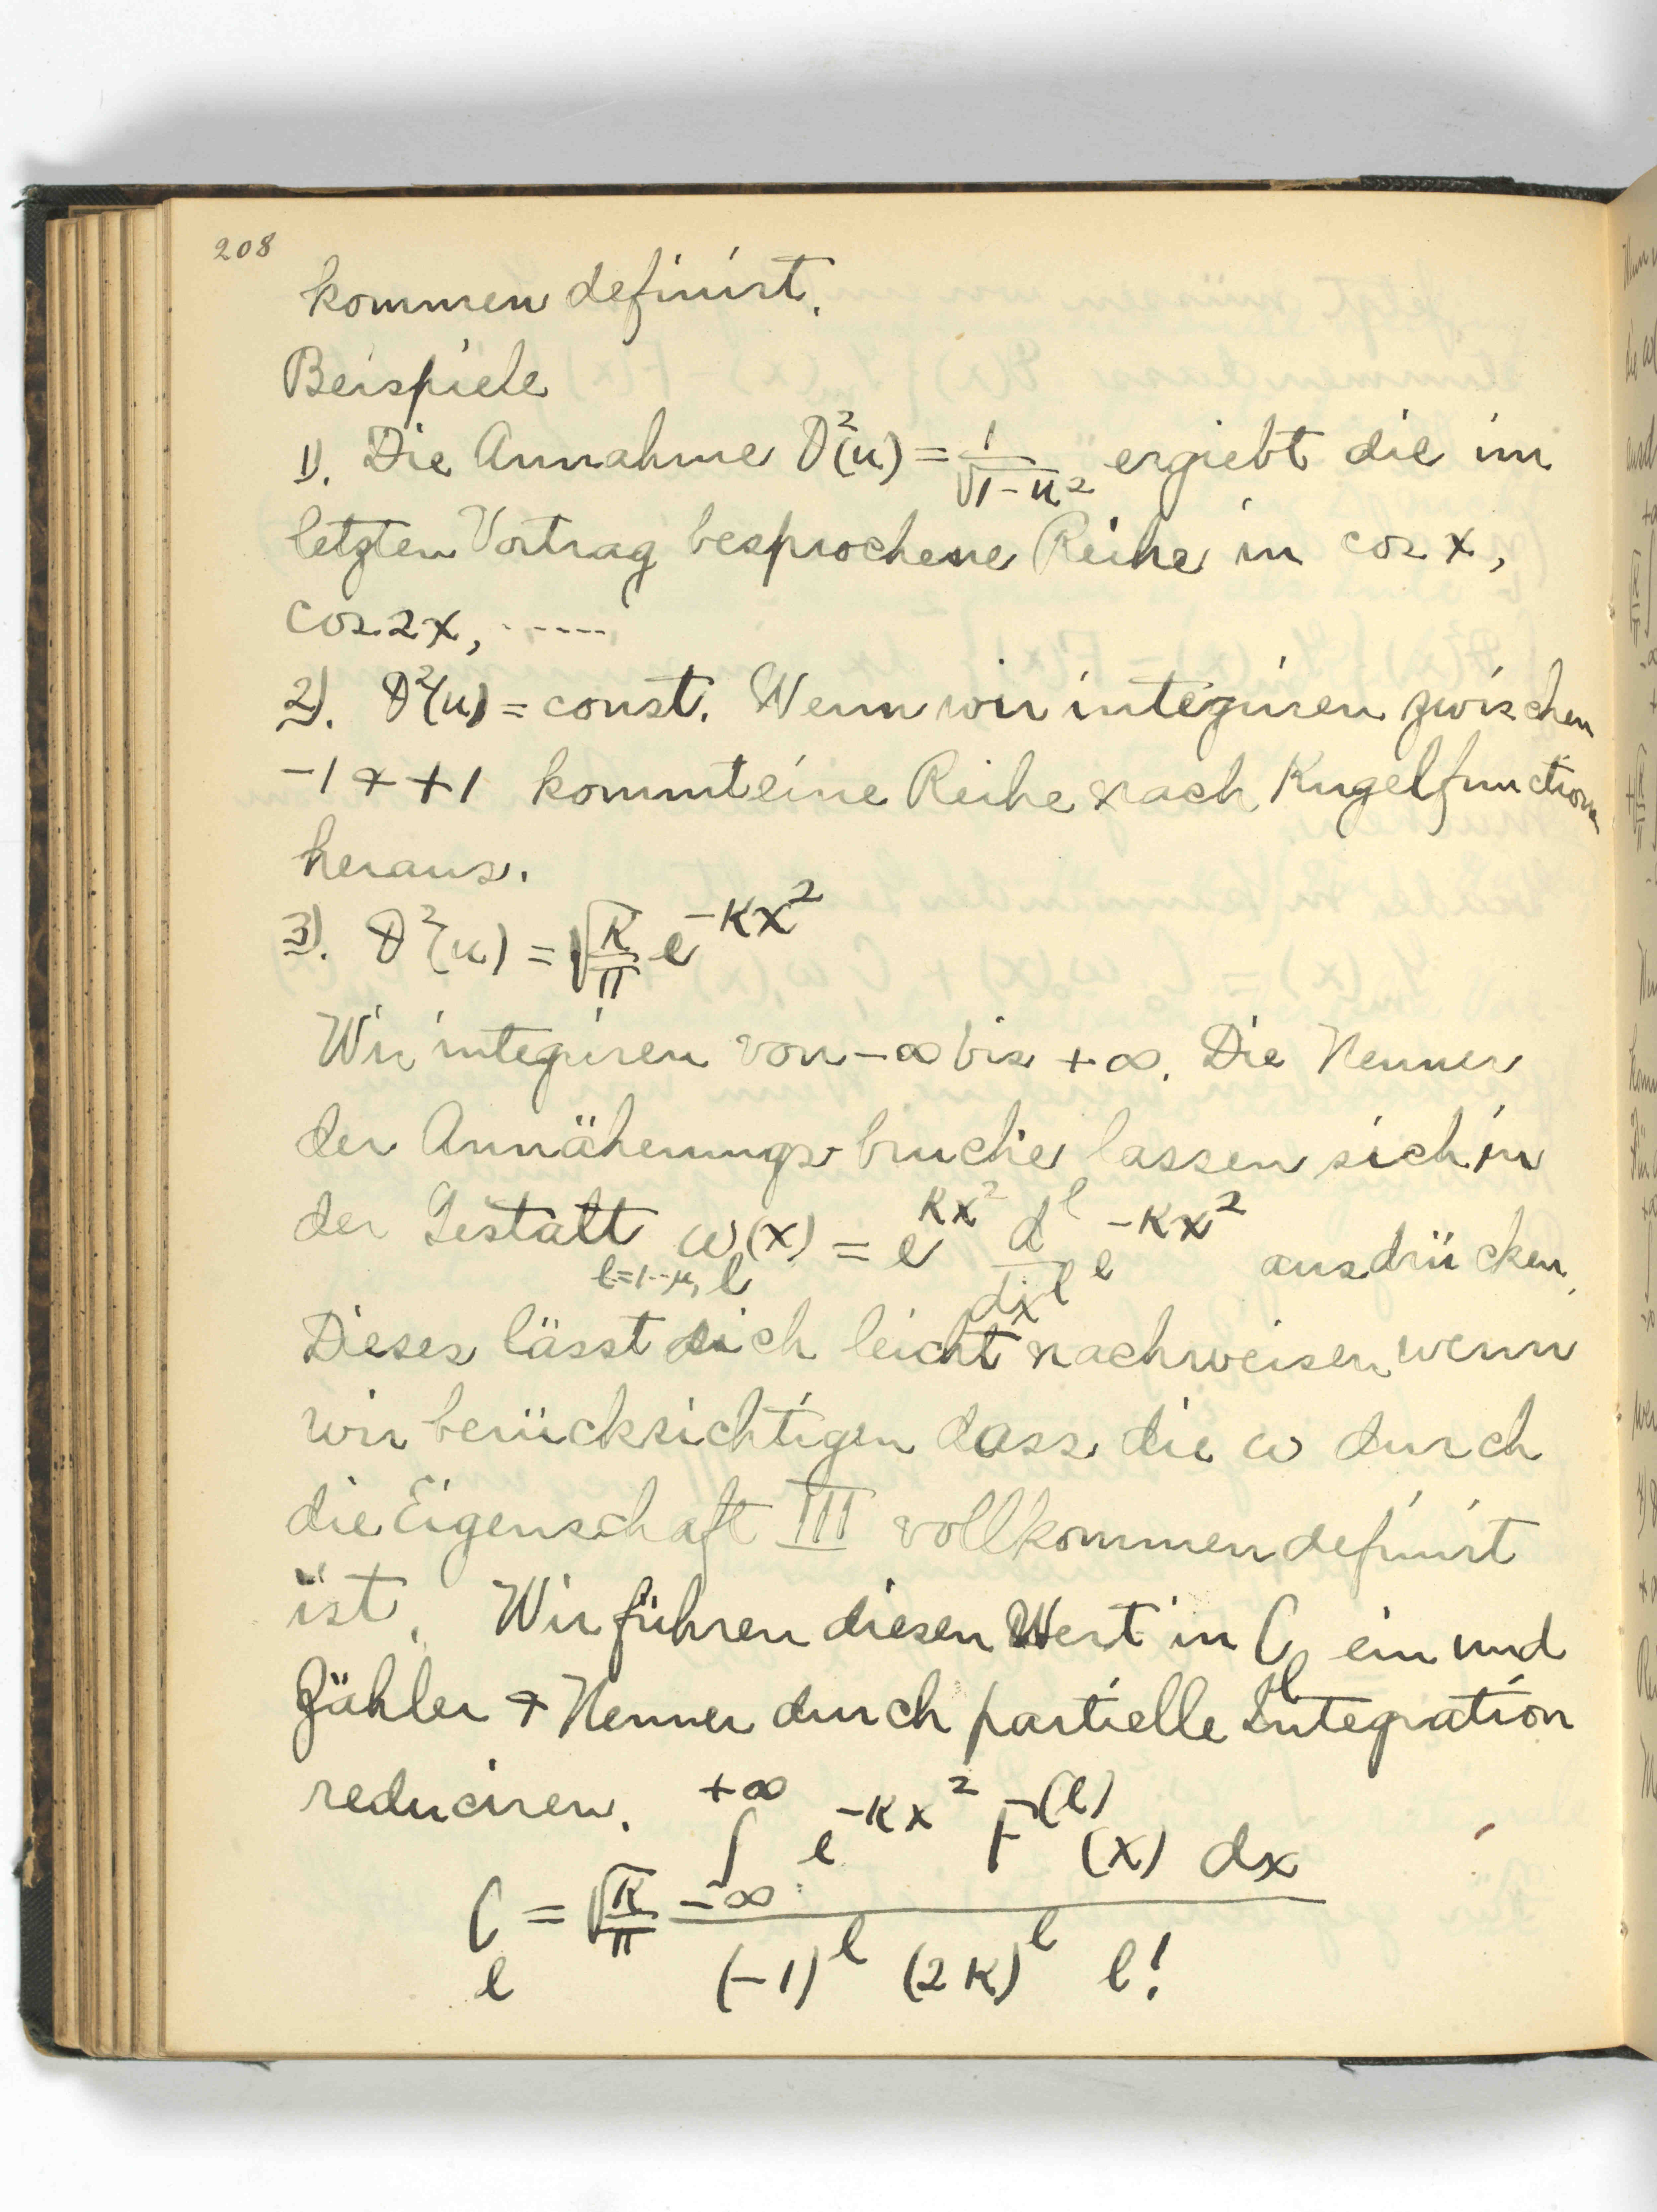 208
kommen definirt.
Beispiele
1). Die Annahme ϑ²(u) = 1/√(1-u²) ergiebt die im
letzten Vortrag besprochene Reihe in cos x,
cos 2x, ------
2). ϑ²(u) = const. Wenn wir integriren zwischen
-1 + +1 kommt eine Reihe nach Kugelfunction
heraus.
3). ϑ²(u) = √(K/π) e^(-Kx²)
Wir integriren von -∞ bis +∞. Die Nenner
der Annäherungs-bruche lassen sich in
der Gestalt ω_l(x) = e^(Kx²) d^l/dx^l e^(-Kx²) ausdrücken.
l=1--μ,
Dieses lässt sich leicht nachweisen wenn
wir berücksichtigen dass die ω durch
die Eigenschaft III vollkommen definirt
ist. Wir führen diesen Wert in C_l ein und
Zähler + Nenner durch partielle Integration
reduciren.
C_l = √(K/π) ∫_{-∞}^{+∞} e^(-Kx²) F^(l)(x) dx / (-1)^l (2K)^l l!